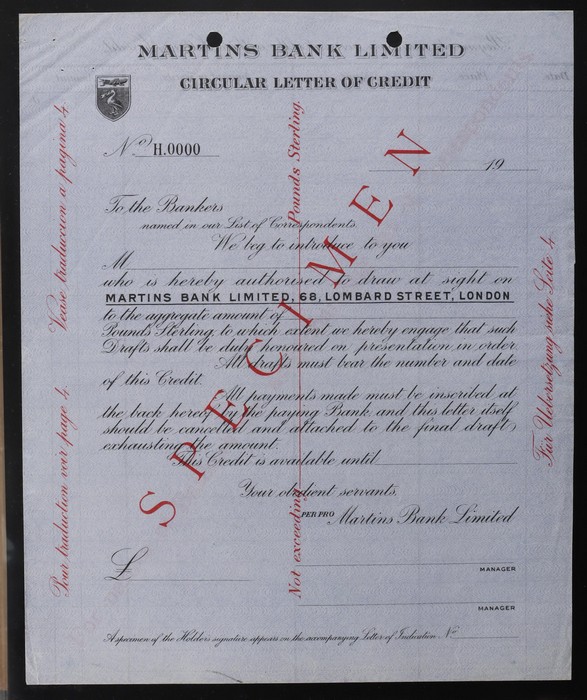 MARTINS BANK LIMITED
CIRCULAR LETTER OF CREDIT
No H.0000
19
To the Bankers
named in our List of Correspondents.
We beg to introduce to you
M
who is hereby authorised to draw at sight on
MARTINS BANK LIMITED, 68, LOMBARD STREET, LONDON
to the aggregate amount of
Pounds Sterling, to which extent we hereby engage that such
Drafts shall be duly honoured on presentation, in order.
All drafts must bear the number and date
of this Credit.
All payments made must be inscribed at
the back hereof by the paying Bank and this letter itself
should be cancelled and attached to the final draft
exhausting the amount.
This Credit is available until
Your obedient servants,
PER PRO Martins Bank Limited
£
MANAGER
MANAGER
A specimen of the Holders signature appears on the accompanying Letter of Indication No
SPECIMEN
Not exceeding Pounds Sterling.
Vease traduccion a pagina 4
Pour traduction voir page 4.
Für Uebersetzung siehe Seite 4